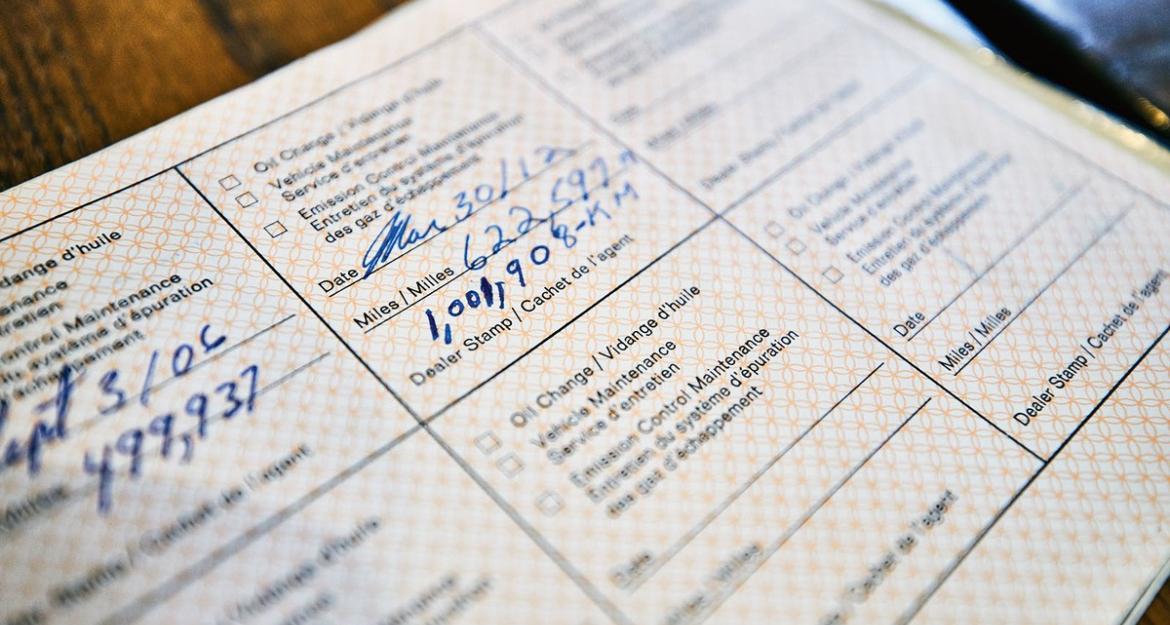 Oil Change / Vidange d'huile
Vehicle Maintenance
Service d'entretien
Emission Control Maintenance
Entretien du système d'épuration
des gaz d'échappement
Date Mar 30/12
Miles / Milles 622,597 m
1,001,908-KM
Dealer Stamp / Cachet de l'agent
Vidange d'huile
Control Maintenance
du système d'épuration
d'échappement
Sept 3/06
499,937
Cachet de l'agent
Oil Change / Vidange d'huile
Vehicle Maintenance
Service d'entretien
Emission Control Maintenance
Entretien du système d'épuration
des gaz d'échappement
Date
Milles
Cachet de l'agent
Oil Change / Vidange d'huile
Vehicle Maintenance
Service d'entretien
Emission Control Maintenance
Entretien du système d'épuration
des gaz d'échappement
Date
Miles / Milles
Dealer Stamp / Cachet de l'agent